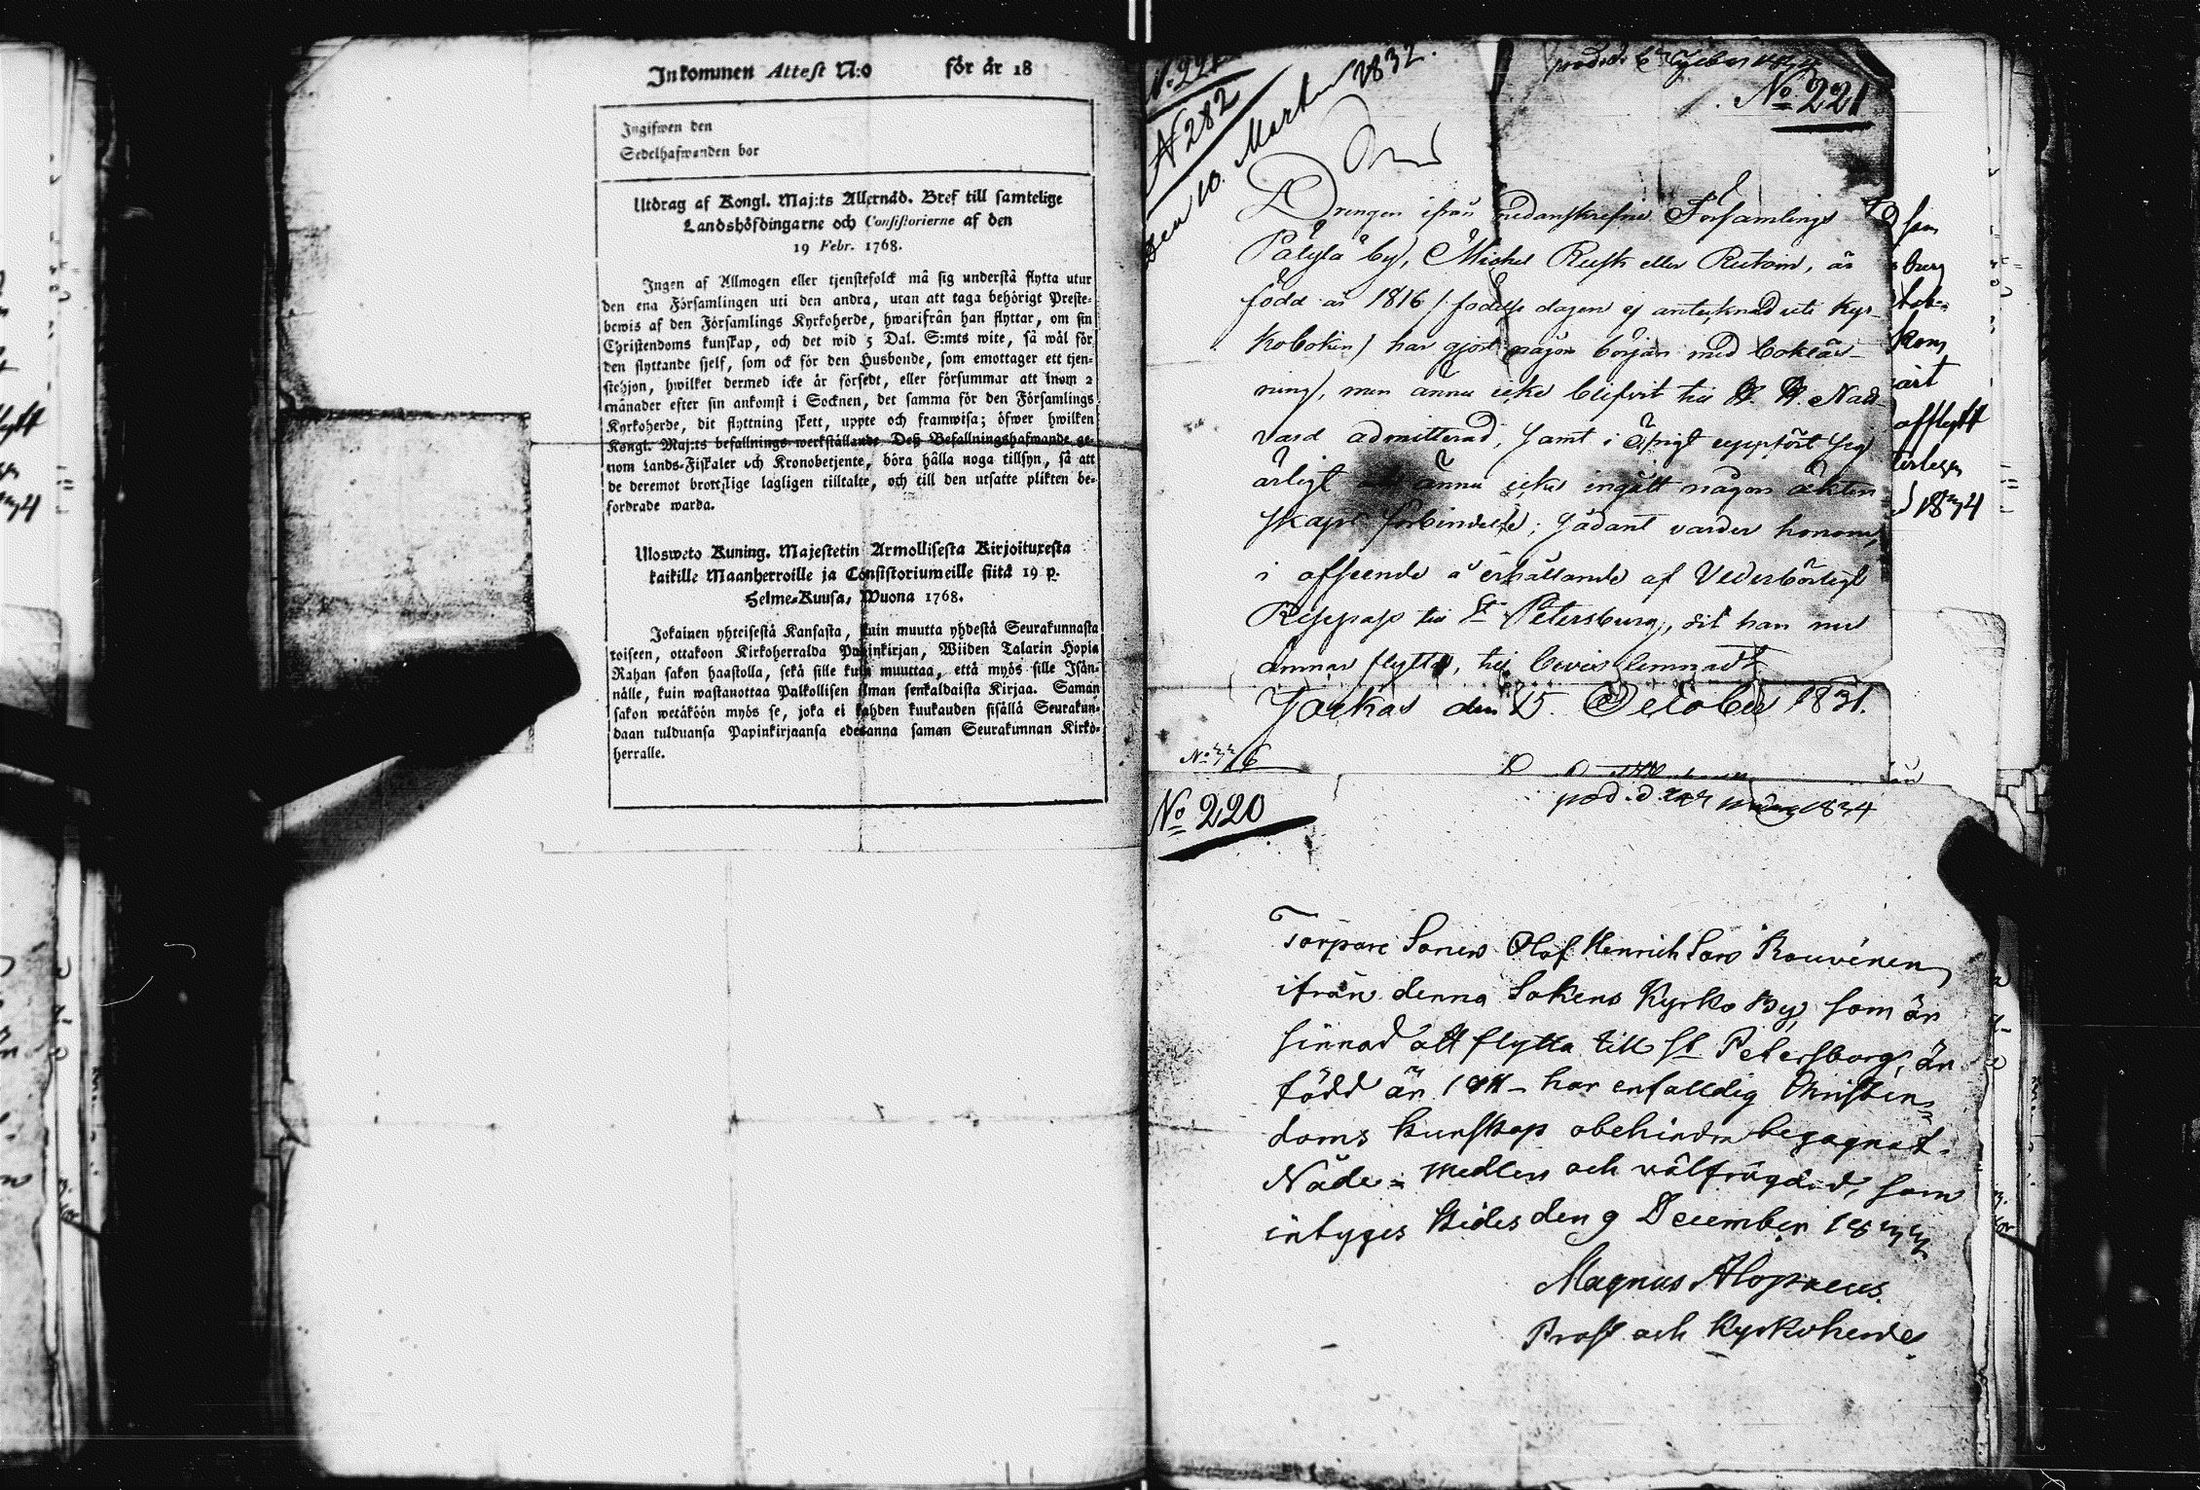 Inkommen Attest N:o för år 18
Ingifwen den
Sedelhafwanden bor
Utdrag af Kongl. Maj:ts Allernåd. Bref till samtelige
Landshöfdingarne och Consistorierne af den
19 Febr. 1768.
Ingen af Allmogen eller tjenstefolck må sig understå flytta utur
den ena Församlingen uti den andra, utan att taga behörigt Preste-
bewis af den Församlings Kyrkoherde, hwarifrån han flyttar, om sin
Christendoms kunskap, och det wid 5 Dal. S:mts wite, så wäl för
den flyttande sjelf, som ock för den Husbonde, som emottager ett tjen-
stehjon, hwilket dermed icke är försedt, eller försummar att inom 2
månader efter sin ankomst i Socknen, det samma för den Församlings
Kyrkoherde, dit flyttning skett, uppte och framwisa; öfwer hwilken
Kongl. Maj:ts befallnings werkställande Deß Befallningshafwande ge-
nom Lands-Fiskaler och Kronobetjente, böra hålla noga tillsyn, så att
de deremot brottslige lagligen tilltalte, och till den utsatte plikten be-
fordrade warda.
Ulosweto Kuning. Majestetin Armollisesta Kirjoituxesta
kaikille Maanherroille ja Consistoriumeille siitä 19 p.
Helme-Kuusa, Wuona 1768.
Jokainen yhteisestä Kansasta, kuin muutta yhdestä Seurakunnasta
toiseen, ottakoon Kirkoherralda Papinkirjan, Wiiden Talarin Hopia
Rahan sakon haastolla, sekä sille kuin muuttaa, että myös sille Isän-
nälle, kuin wastanottaa Palkollisen ilman senkaldaista Kirjaa. Saman
sakon wetäköön myös se, joka ei kahden kuukauden sisällä Seurakun-
daan tulduansa Papinkirjaansa edesanna saman Seurakunnan Kirko-
herralle.
N:o 221
N 282
den 10. Martii 1832.
No 221
Drengen ifrån nedanskrefne Församlings
Pälylä by, Michel Rusk eller Rutoin, är
född år 1816 /: födelse dagen ej antecknad uti Kyr-
koboken / har gjort någon början med boklär-
ning, men ännu icke blifvit till H. H. Natt-
vard admitterad, samt i öfrigt uppfört sig
ärligt och ännu icke ingått någon äkten-
skaps förbindelse; sådant varder honom,
i afseende å erhållande af Vederbörligt
Respass till St Petersburg, dit han nu
ämnar flytta, till bevis lemnadt
Jaekas den 15. October 1831.
No 220
Torpare Sonen Olof Henrich Sons Rouvinen
ifrån denna Sokens Kyrko By, som är
sinnad att flytta till St Petersborg, är
född år 1811 - har enfalldig Christen-
doms kunskap obehindra begagnat
Nåde-Medlen och välfrägdad, som
intyges Kides den 9 December 1833
Magnus Alopaeus.
Prost och Kyrkoherde.